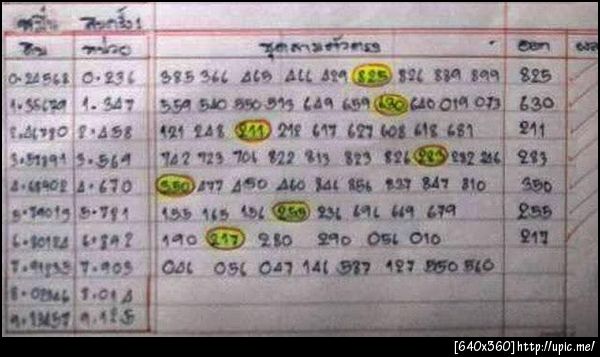 สิบ หน่วย ชุดสามตัวตรง ออก
0.24568 0.236 385 366 465 466 429 825 826 889 899 825
1.35679 1.347 559 540 550 593 649 659 630 640 019 073 630
2.46780 2.458 121 248 211 212 617 627 608 618 681 211
3.57891 3.569 742 723 706 822 813 823 826 283 232 246 283
4.68902 4.670 350 477 450 460 846 856 837 847 810 350
5.79013 5.781 155 165 156 255 236 696 669 679 255
6.80124 6.892 190 217 280 290 056 010 217
7.91235 7.903 046 056 047 146 587 127 550 560
8.02346 8.014
9.13457 9.125
[640x360]http://upic.me/